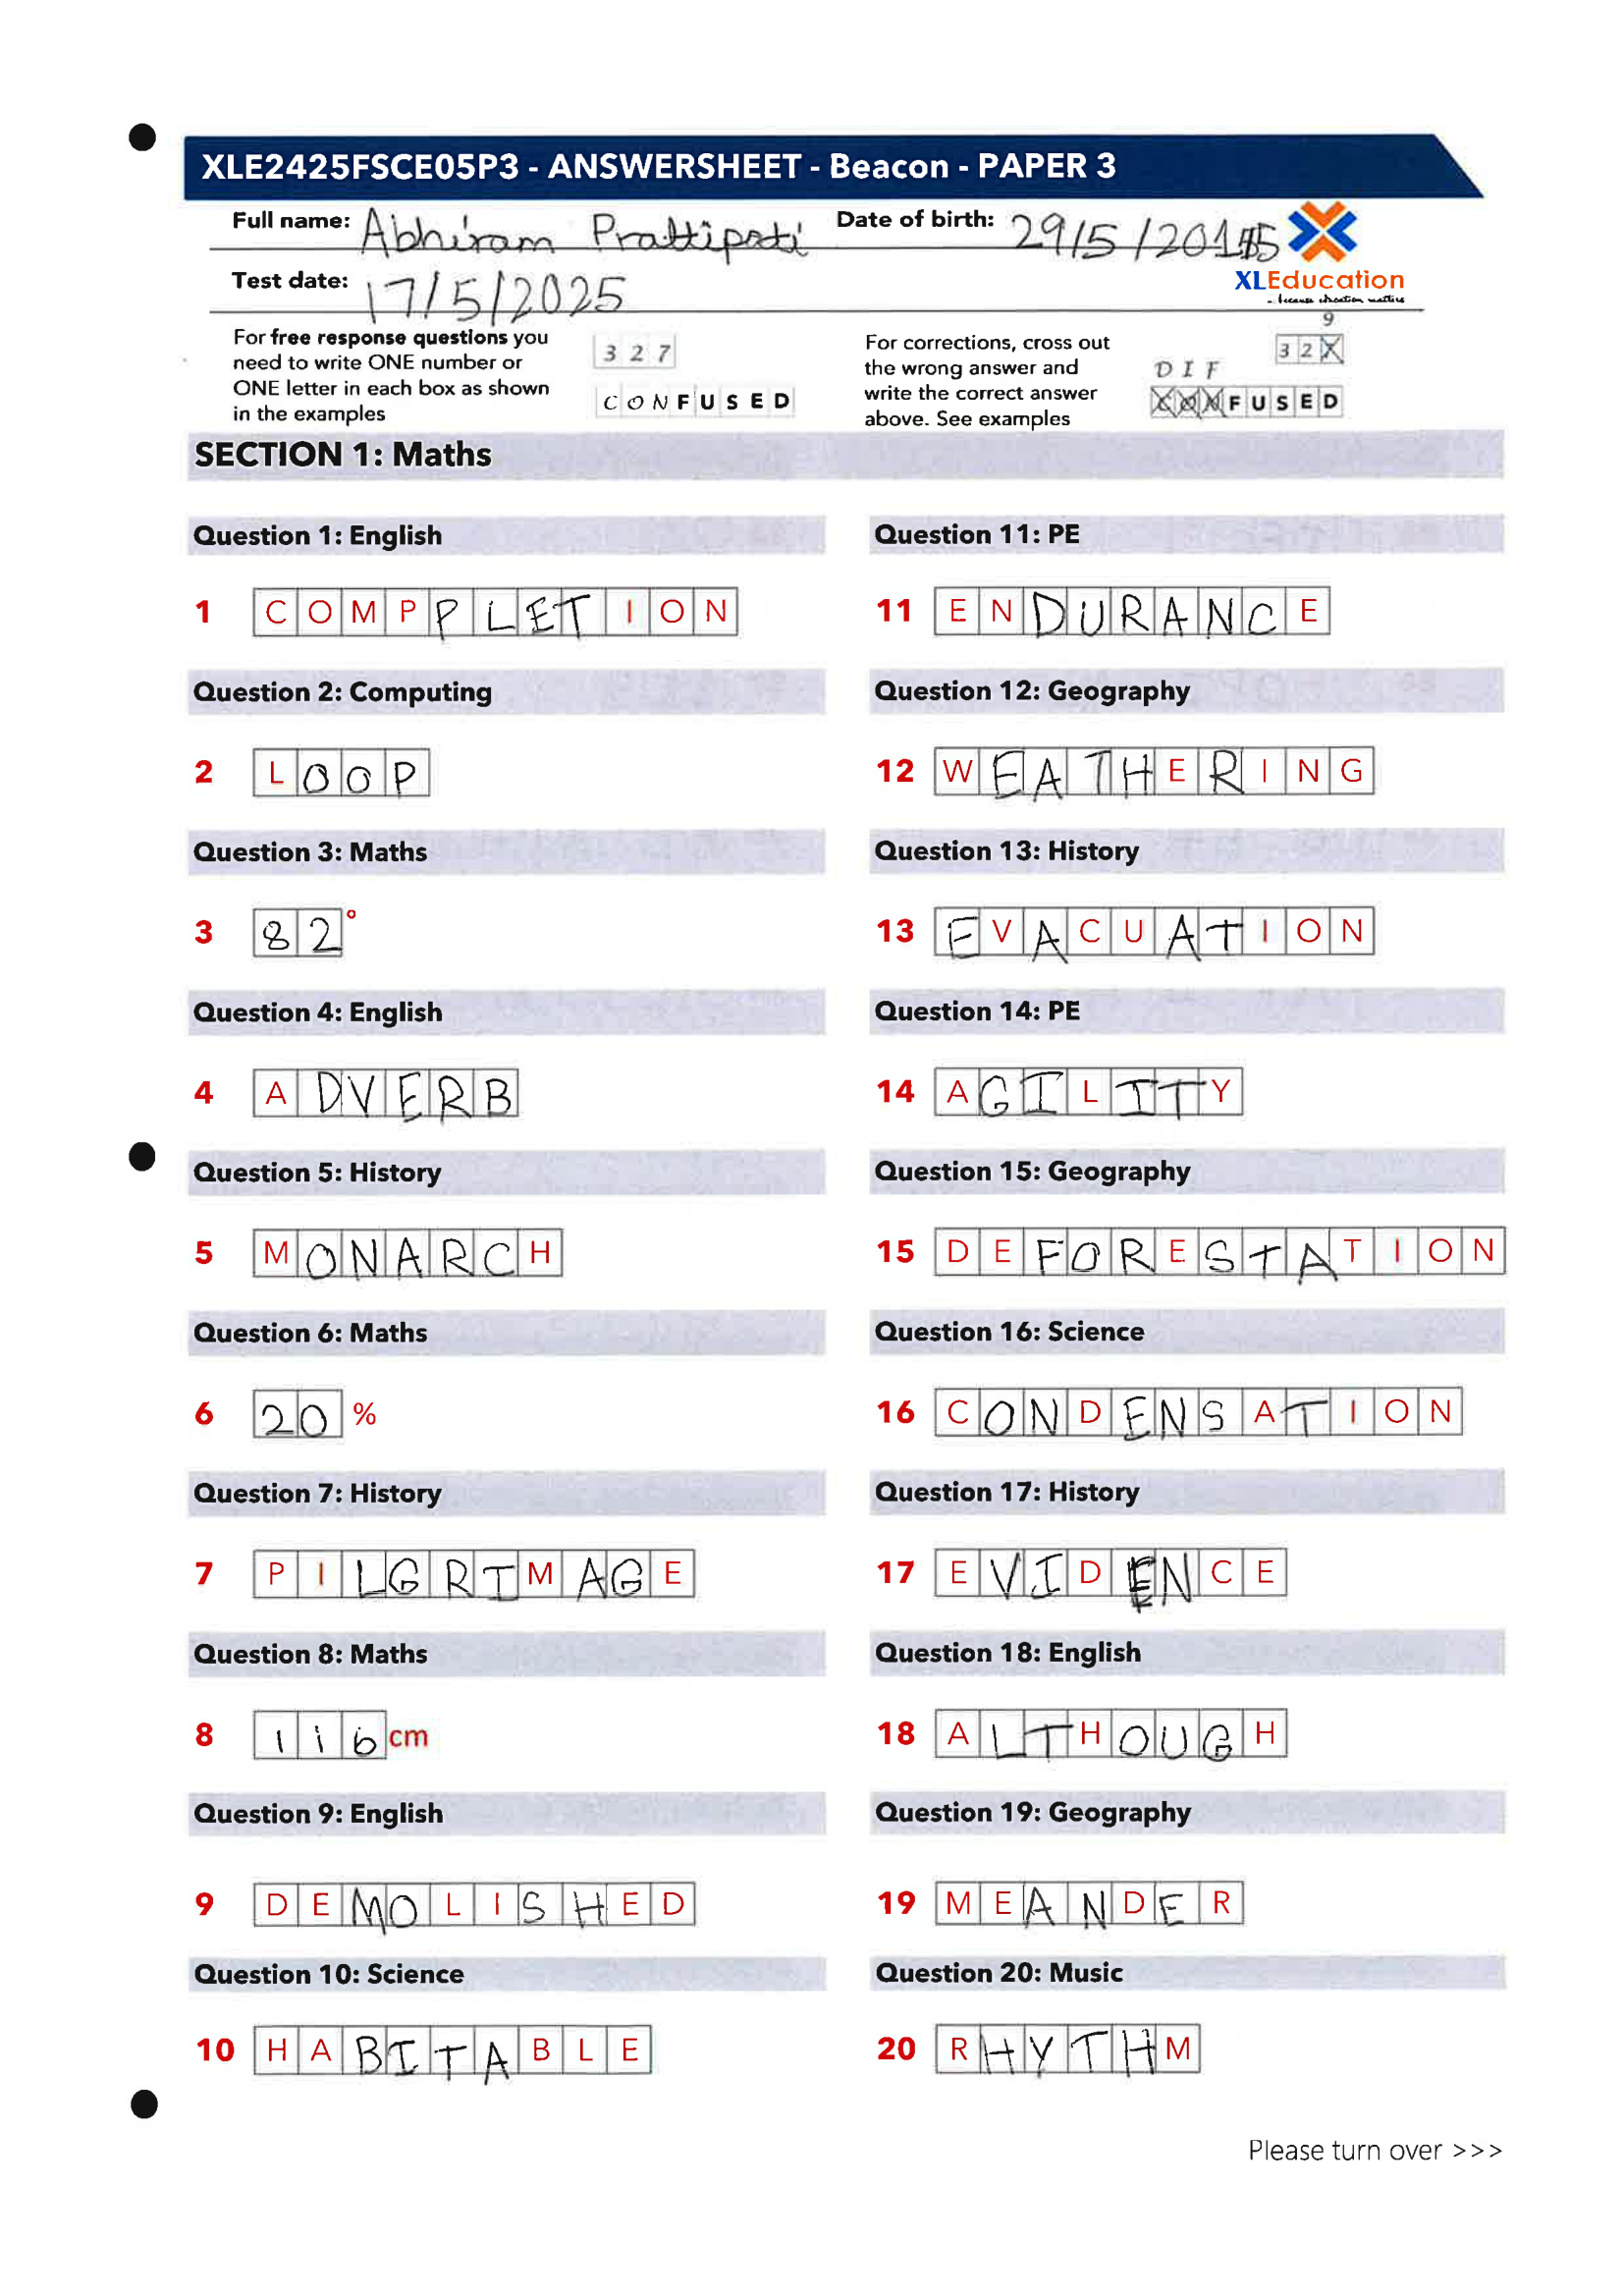 XLE2425FSCE05P3 - ANSWERSHEET - Beacon - PAPER 3
Full name: Abhiram Prattipati Date of birth: 29/5/2015
XLEducation
... because education matters
Test date: 17/5/2025
For free response questions you
need to write ONE number or
ONE letter in each box as shown
in the examples
3 2 7
C O N F U S E D
For corrections, cross out
the wrong answer and
write the correct answer
above. See examples
9
3 2 X
D I F
F U S E D
SECTION 1: Maths
Question 1: English
1 C O M P P L E T I O N
Question 2: Computing
2 L O O P
Question 3: Maths
3 8 2 °
Question 4: English
4 A D V E R B
Question 5: History
5 M O N A R C H
Question 6: Maths
6 2 0 %
Question 7: History
7 P I L G R I M A G E
Question 8: Maths
8 1 1 6 cm
Question 9: English
9 D E M O L I S H E D
Question 10: Science
10 H A B I T A B L E
Question 11: PE
11 E N D U R A N C E
Question 12: Geography
12 W E A T H E R I N G
Question 13: History
13 E V A C U A T I O N
Question 14: PE
14 A G I L I T Y
Question 15: Geography
15 D E F O R E S T A T I O N
Question 16: Science
16 C O N D E N S A T I O N
Question 17: History
17 E V I D E N C E
Question 18: English
18 A L T H O U G H
Question 19: Geography
19 M E A N D E R
Question 20: Music
20 R H Y T H M
Please turn over >>>